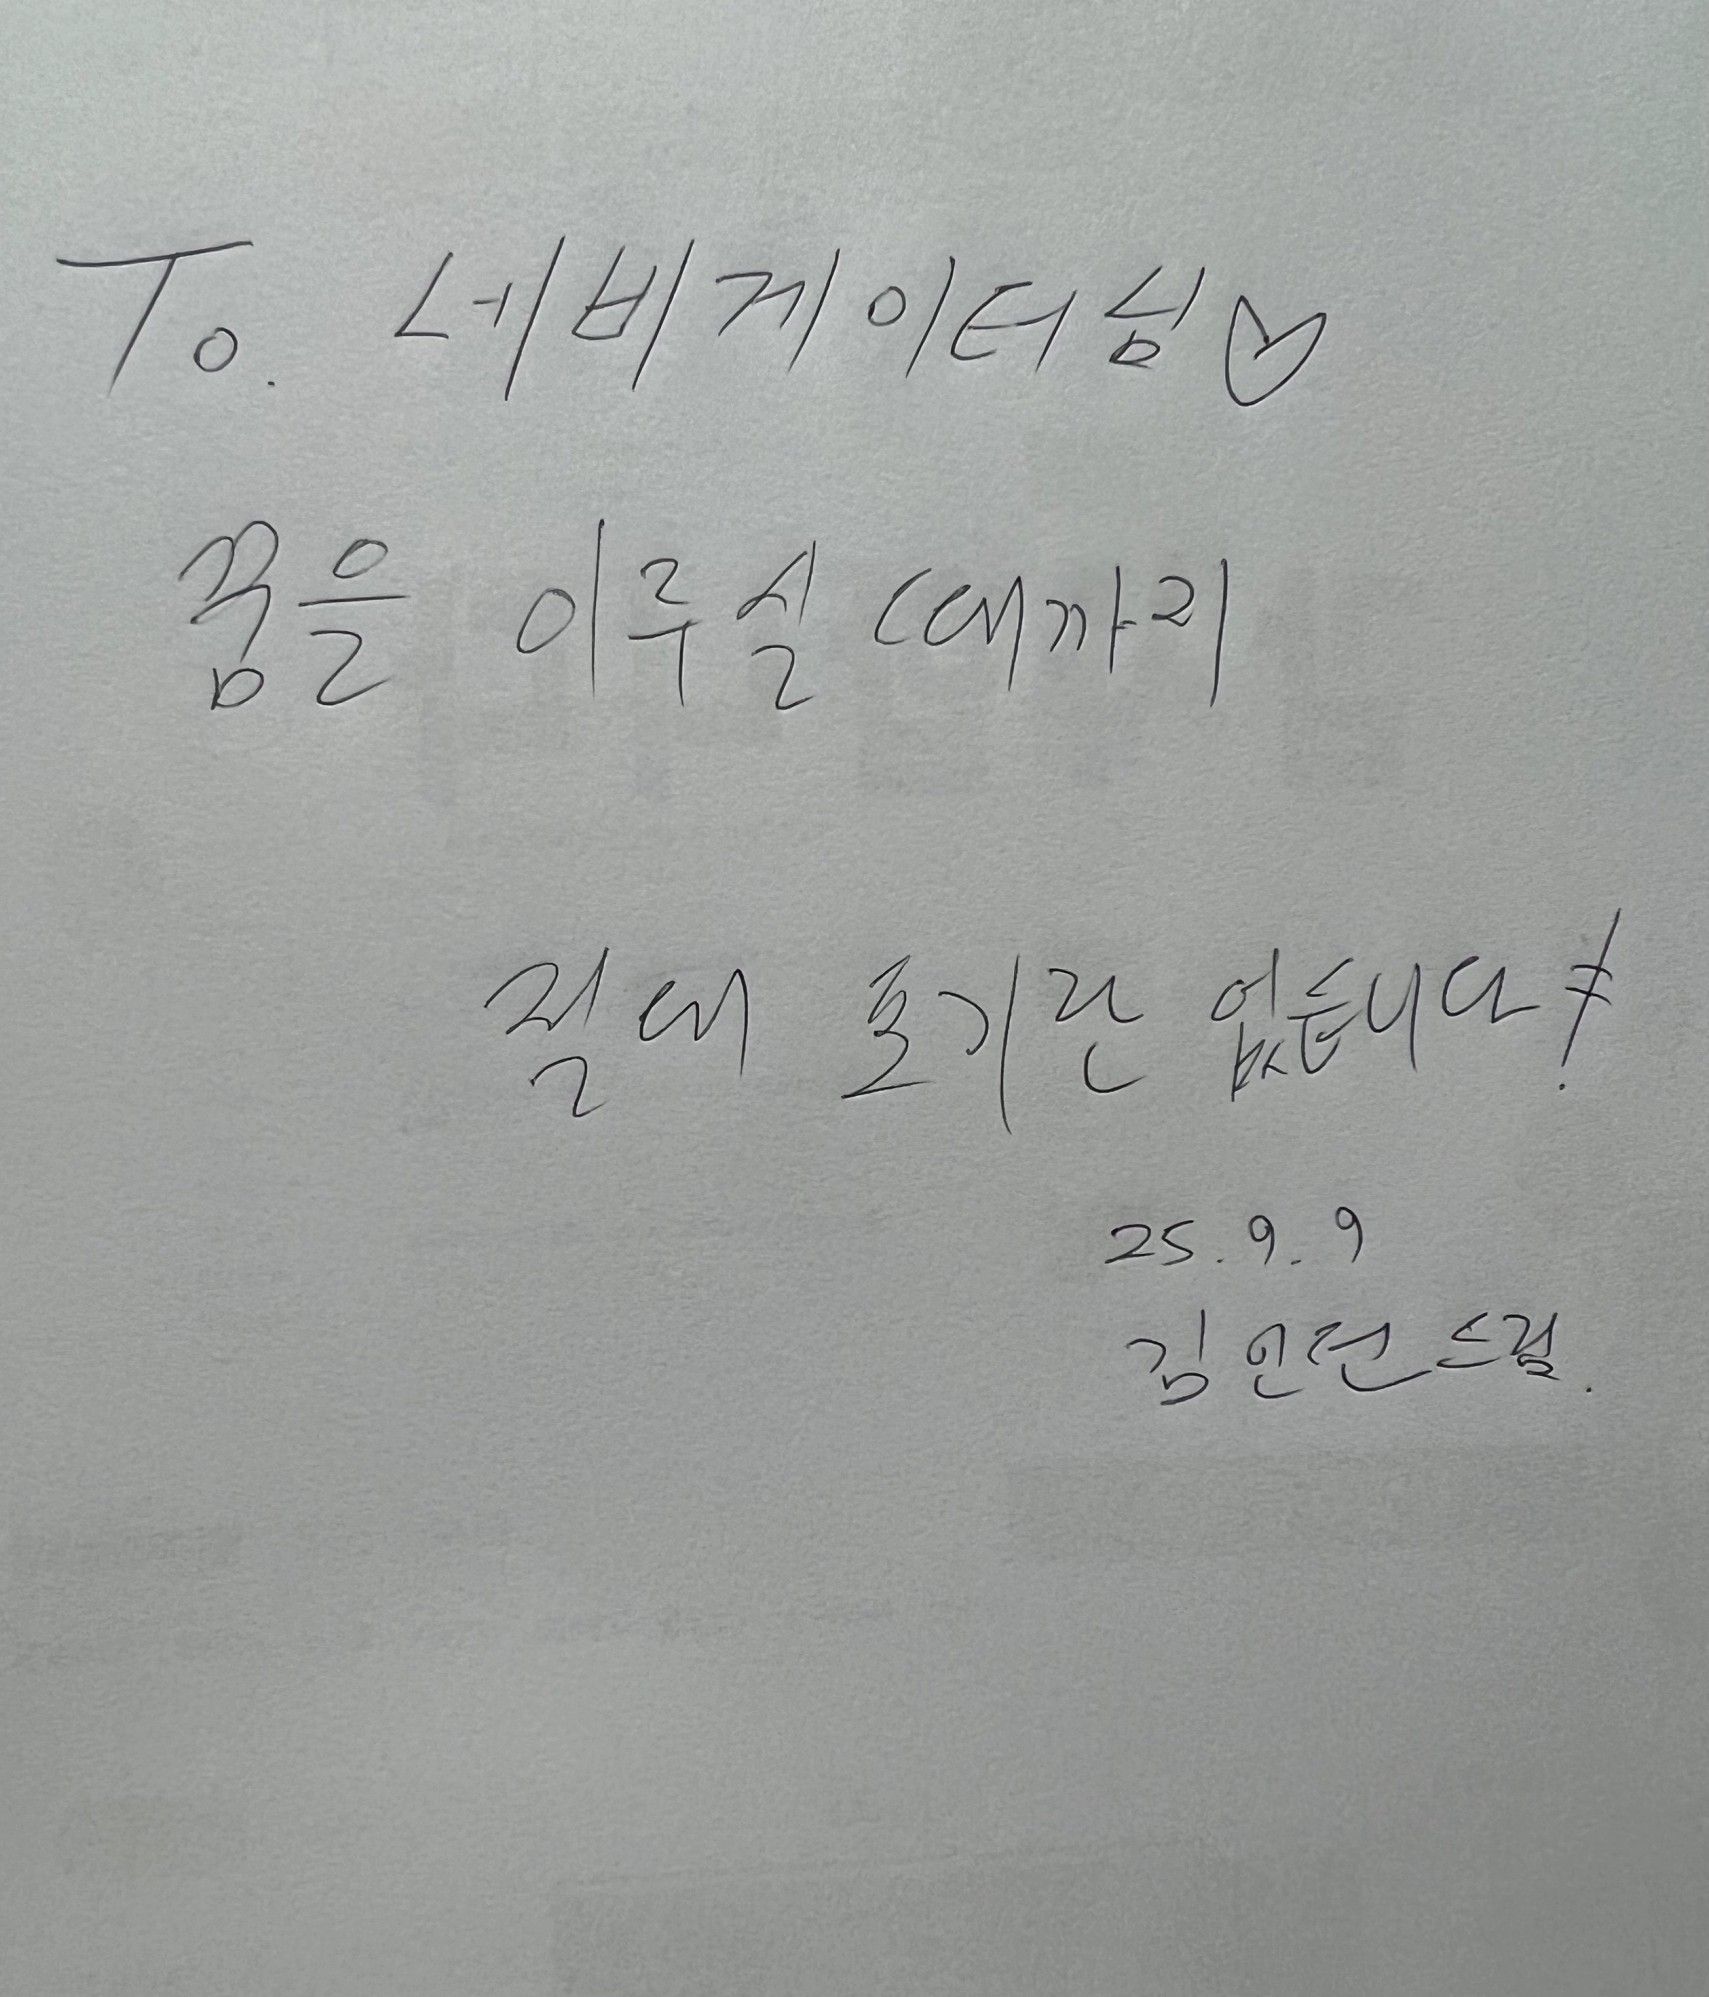 To. 네비게이터님♡
꿈을 이루실 때까지
절대 포기란 없습니다!
25. 9. 9
김인전 드림.